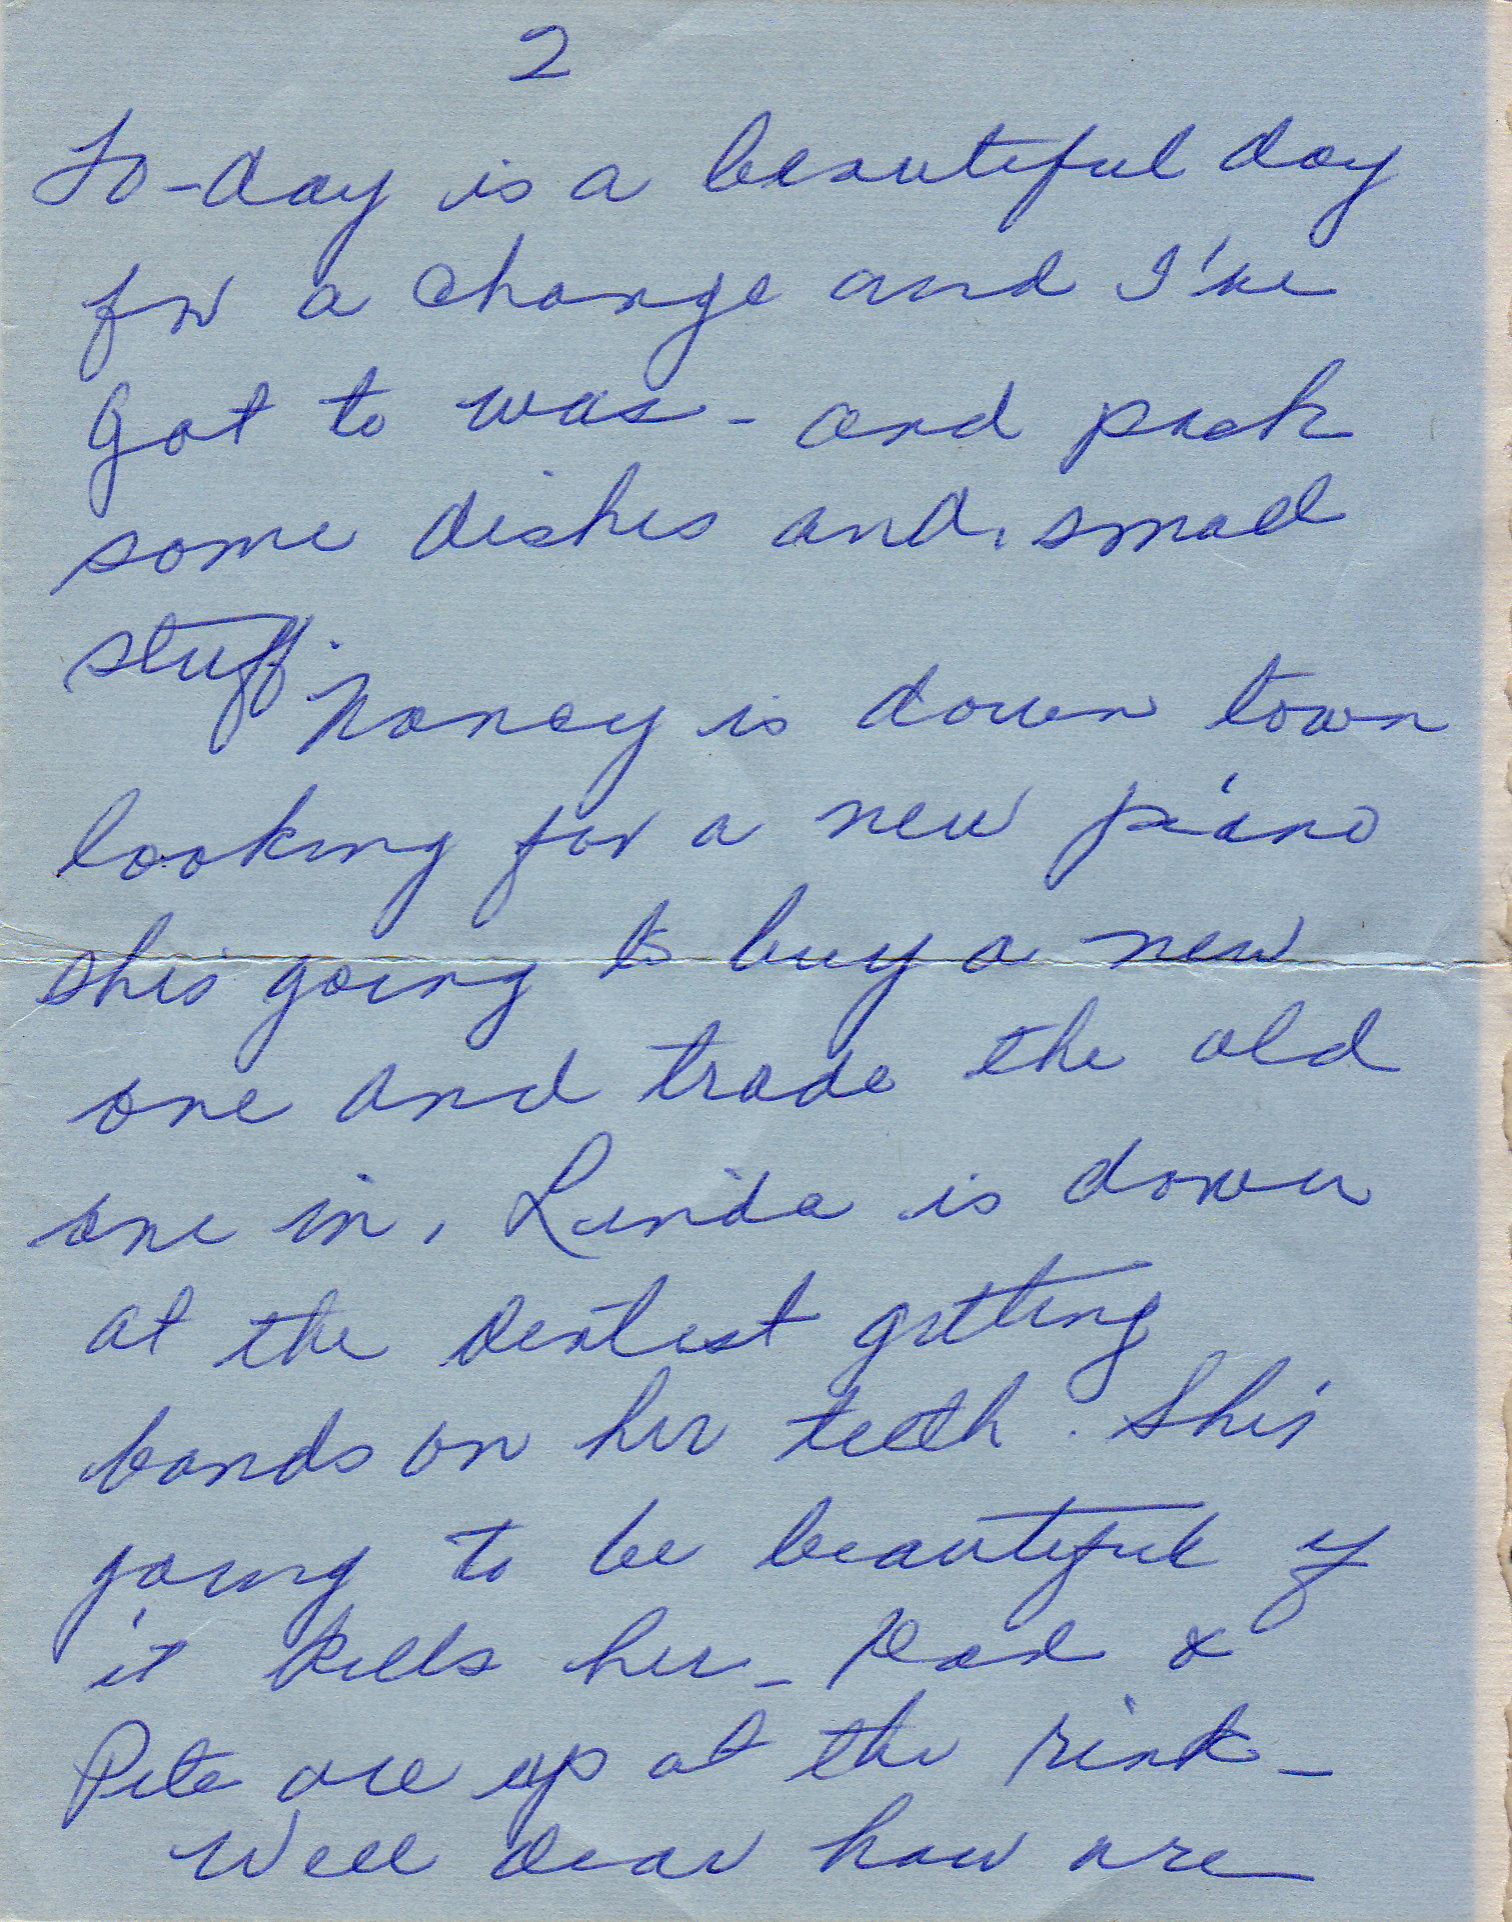 2
To-day is a beautiful day
for a change and I've
got to wax - and pack
some dishes and small
stuff.
Nancy is down town
looking for a new piano
she's going to buy a new
one and trade the old
one in. Linda is down
at the dentist getting
bands on her teeth. She's
going to be beautiful if
it kills her - Dad &
Pete are up at the rink -
Well dear how are